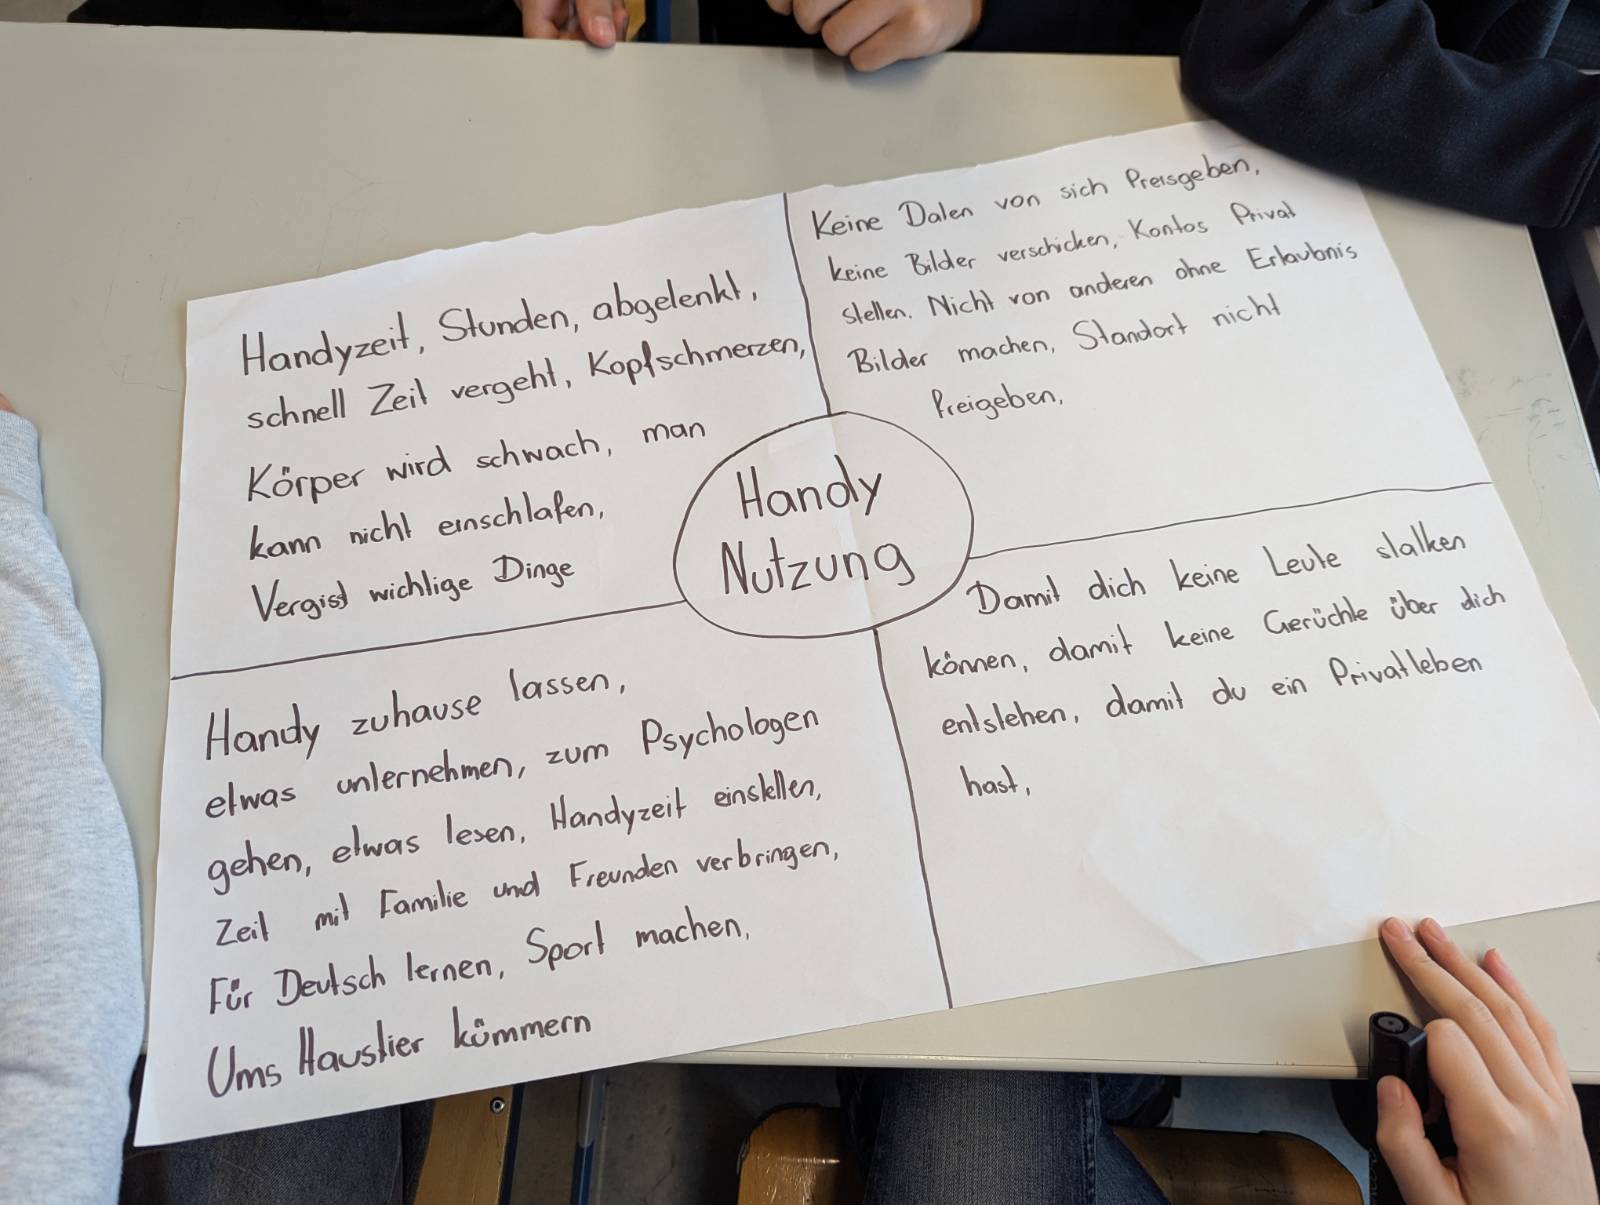 Handyzeit, Stunden, abgelenkt,
schnell Zeit vergeht, Kopfschmerzen,
Körper wird schwach, man
kann nicht einschlafen,
Vergisst wichtige Dinge
Keine Daten von sich Preisgeben,
keine Bilder verschicken, Kontos Privat
stellen. Nicht von anderen ohne Erlaubnis
Bilder machen, Standort nicht
Preigeben,
Handy
Nutzung
Handy zuhause lassen,
etwas unternehmen, zum Psychologen
gehen, etwas lesen, Handyzeit einstellen,
Zeit mit Familie und Freunden verbringen,
Für Deutsch lernen, Sport machen,
Ums Haustier kümmern
Damit dich keine Leute stalken
können, damit keine Gerüchte über dich
entstehen, damit du ein Privatleben
hast,